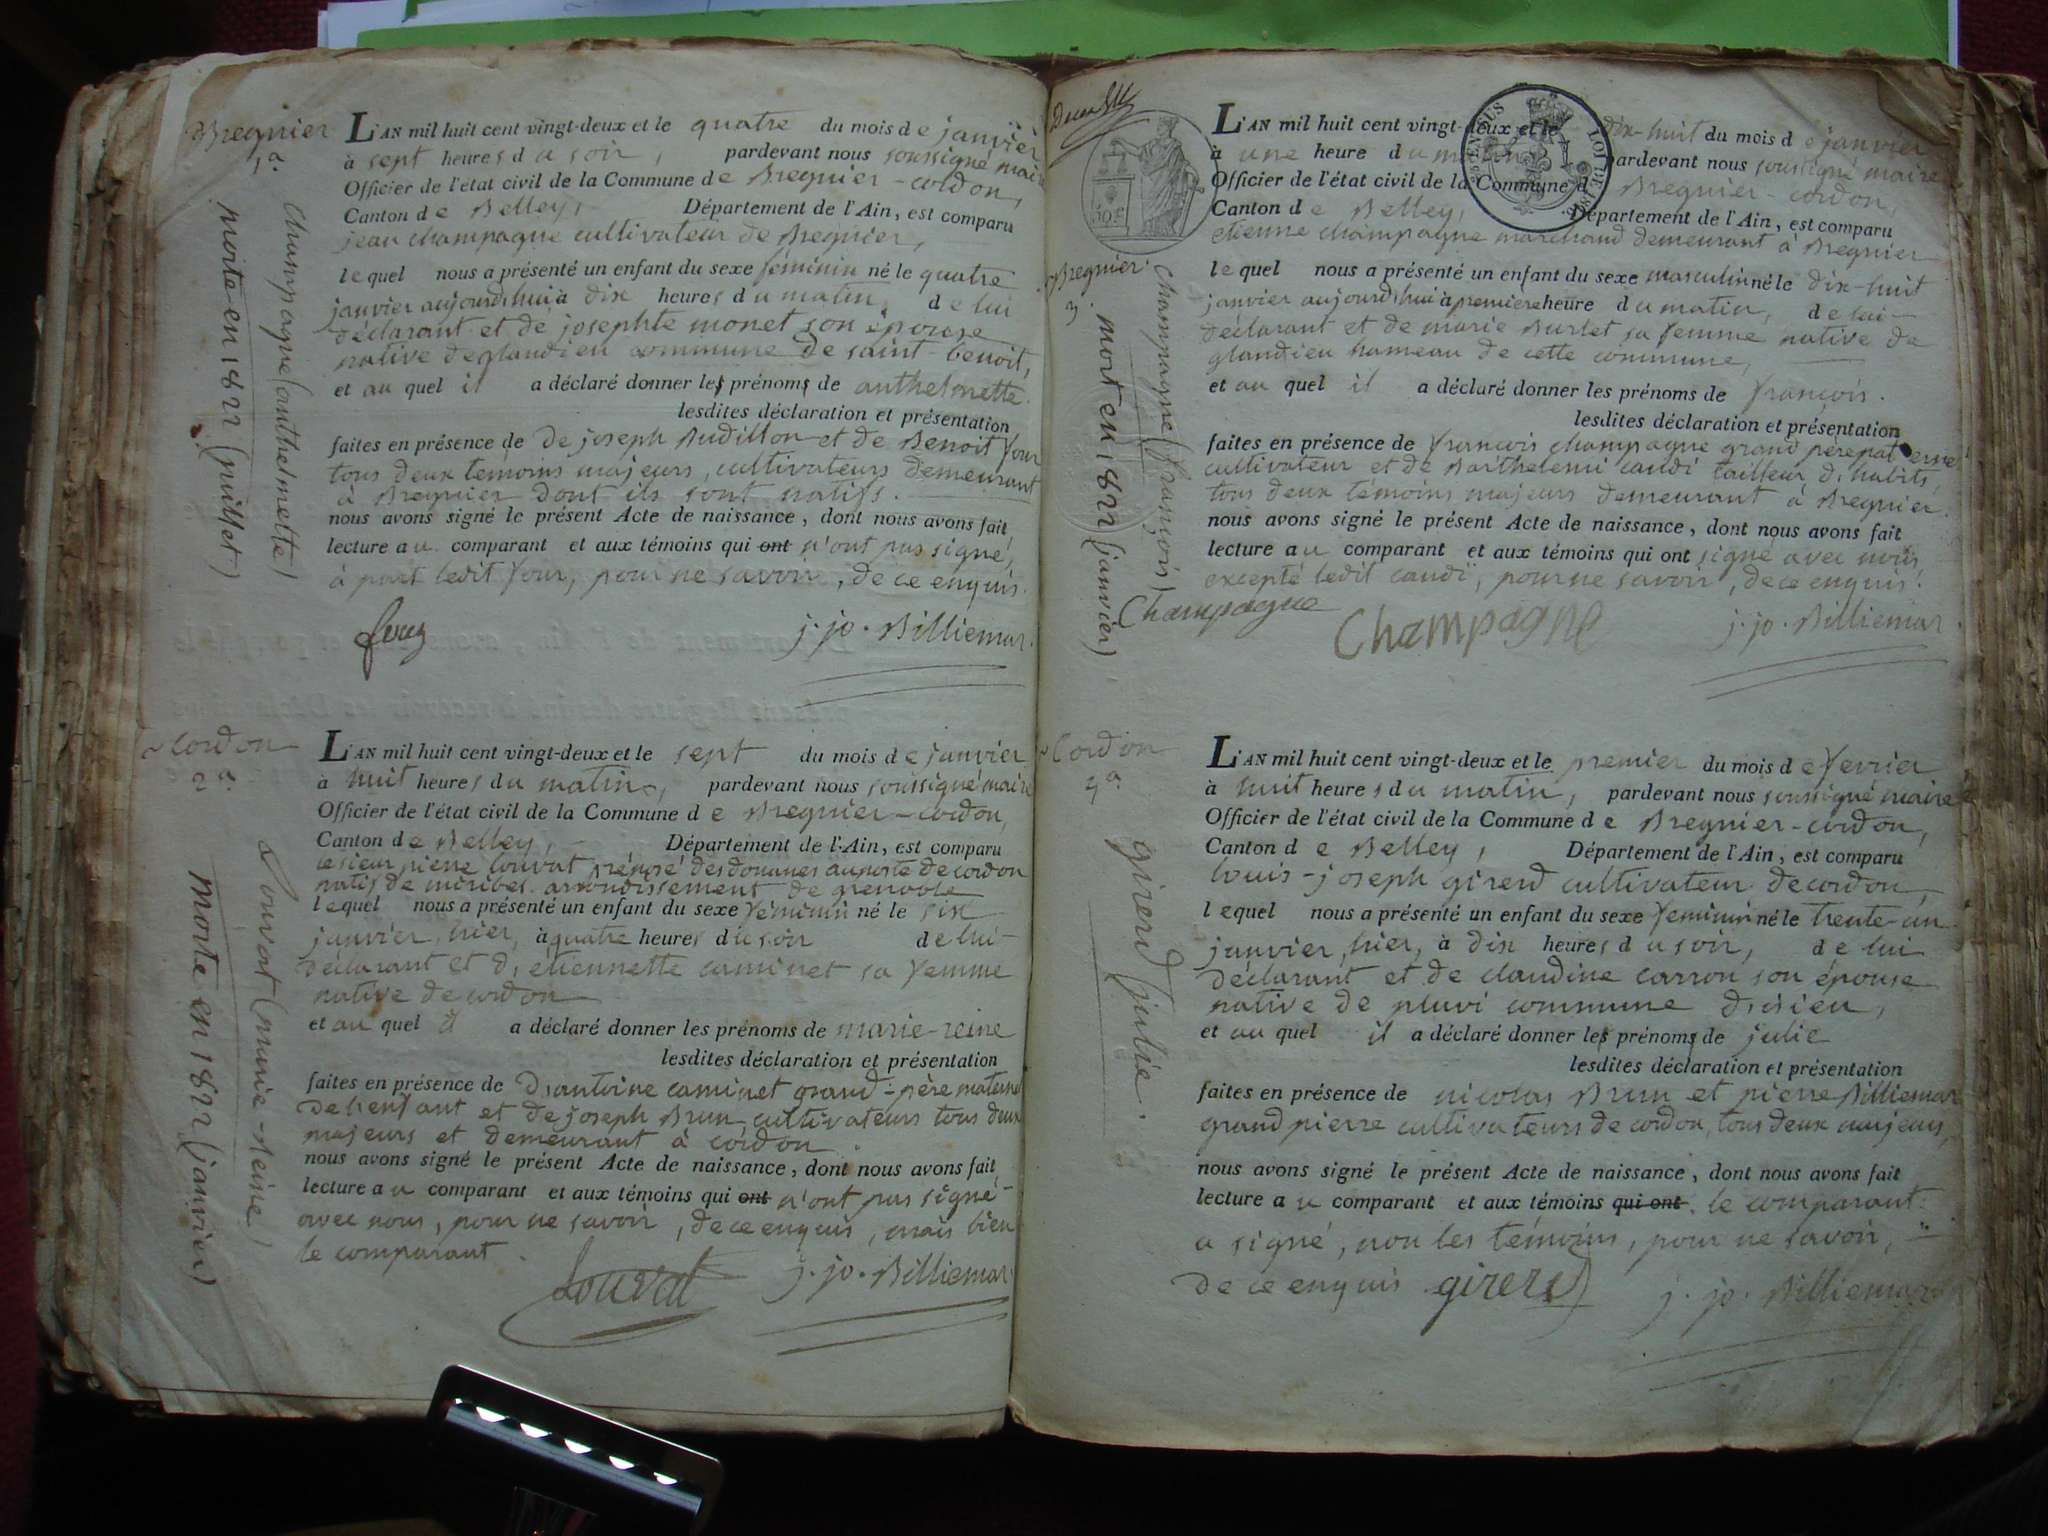 Bregnier
1.a
champagne (anthelmette)
morte en 1822 (juillet)
L'AN mil huit cent vingt-deux et le quatre du mois de janvier
à sept heures du soir, pardevant nous soussigné maire
Officier de l'état civil de la Commune de Bregnier-cordon,
Canton de Belley, Département de l'Ain, est comparu
jean champagne cultivateur de Bregnier,
lequel nous a présenté un enfant du sexe féminin né le quatre
janvier aujourd'hui à dix heures du matin, de lui
déclarant et de josephte monet son épouse
native de glandieu commune de saint-benoit,
et au quel il a déclaré donner les prénoms de anthelmette.
lesdites déclaration et présentation
faites en présence de de joseph Budillon et de Benoit four
tous deux témoins majeurs, cultivateurs demeurant
à Bregnier dont ils sont natifs.
nous avons signé le présent Acte de naissance, dont nous avons fait
lecture au comparant et aux témoins qui ont n'ont pas signé,
à part ledit four, pour ne savoir, de ce enquis.
j. jo. Billiemar
Cordon
2.a
Louvat (marie-Reine)
morte en 1822 (janvier)
L'AN mil huit cent vingt-deux et le sept du mois de janvier
à huit heures du matin, pardevant nous soussigné maire
Officier de l'état civil de la Commune de Bregnier-cordon,
Canton de Belley, Département de l'Ain, est comparu
le sieur pierre Louvat préposé des douanes au poste de cordon
natif de miribel arrondissement de grenoble
lequel nous a présenté un enfant du sexe féminin né le six
janvier, hier, à quatre heures du soir de lui
déclarant et d'etiennette caminet sa femme
native de cordon
et au quel il a déclaré donner les prénoms de marie-reine
lesdites déclaration et présentation
faites en présence de d'antoine caminet grand-père maternel
de l'enfant et de joseph Brun, cultivateurs tous deux
majeurs et demeurant à cordon.
nous avons signé le présent Acte de naissance, dont nous avons fait
lecture au comparant et aux témoins qui ont n'ont pas signé
avec nous, pour ne savoir, de ce enquis, mais bien
le comparant.
Louvat j. jo. Billiemar
Bregnier
3.
champagne (françois)
mort en 1822 (janvier)
L'AN mil huit cent vingt-deux et le dix-huit du mois de janvier
à une heure du matin, pardevant nous soussigné maire
Officier de l'état civil de la Commune de Bregnier-cordon,
Canton de Belley, Département de l'Ain, est comparu
etienne champagne marchand demeurant à Bregnier
lequel nous a présenté un enfant du sexe masculin né le dix-huit
janvier aujourd'hui à première heure du matin, de lui
déclarant et de marie Burlet sa femme native de
glandieu hameau de cette commune,
et au quel il a déclaré donner les prénoms de françois.
lesdites déclaration et présentation
faites en présence de françois champagne grand père paternel
cultivateur et de Barthelemi caudi tailleur d'habits,
tous deux témoins majeurs demeurant à Bregnier.
nous avons signé le présent Acte de naissance, dont nous avons fait
lecture au comparant et aux témoins qui ont signé avec nous,
excepté ledit caudi, pour ne savoir, de ce enquis.
Champagne Champagne j. jo. Billiemar
Cordon
girerd (julie.
L'AN mil huit cent vingt-deux et le premier du mois de fevrier
à huit heures du matin, pardevant nous soussigné maire
Officier de l'état civil de la Commune de Bregnier-cordon,
Canton de Belley, Département de l'Ain, est comparu
louis-joseph girerd cultivateur de cordon,
lequel nous a présenté un enfant du sexe feminin né le trente-un
janvier, hier, à dix heures du soir, de lui
déclarant et de claudine carron son épouse
native de pluvi commune d'isieu,
et au quel il a déclaré donner les prénoms de julie
lesdites déclaration et présentation
faites en présence de nicolas Brun et pierre Billiemar
grand pierre cultivateurs de cordon, tous deux majeurs,
nous avons signé le présent Acte de naissance, dont nous avons fait
lecture au comparant et aux témoins qui ont le comparant
a signé, non les témoins, pour ne savoir,
de ce enquis girerd j. jo. Billiemar